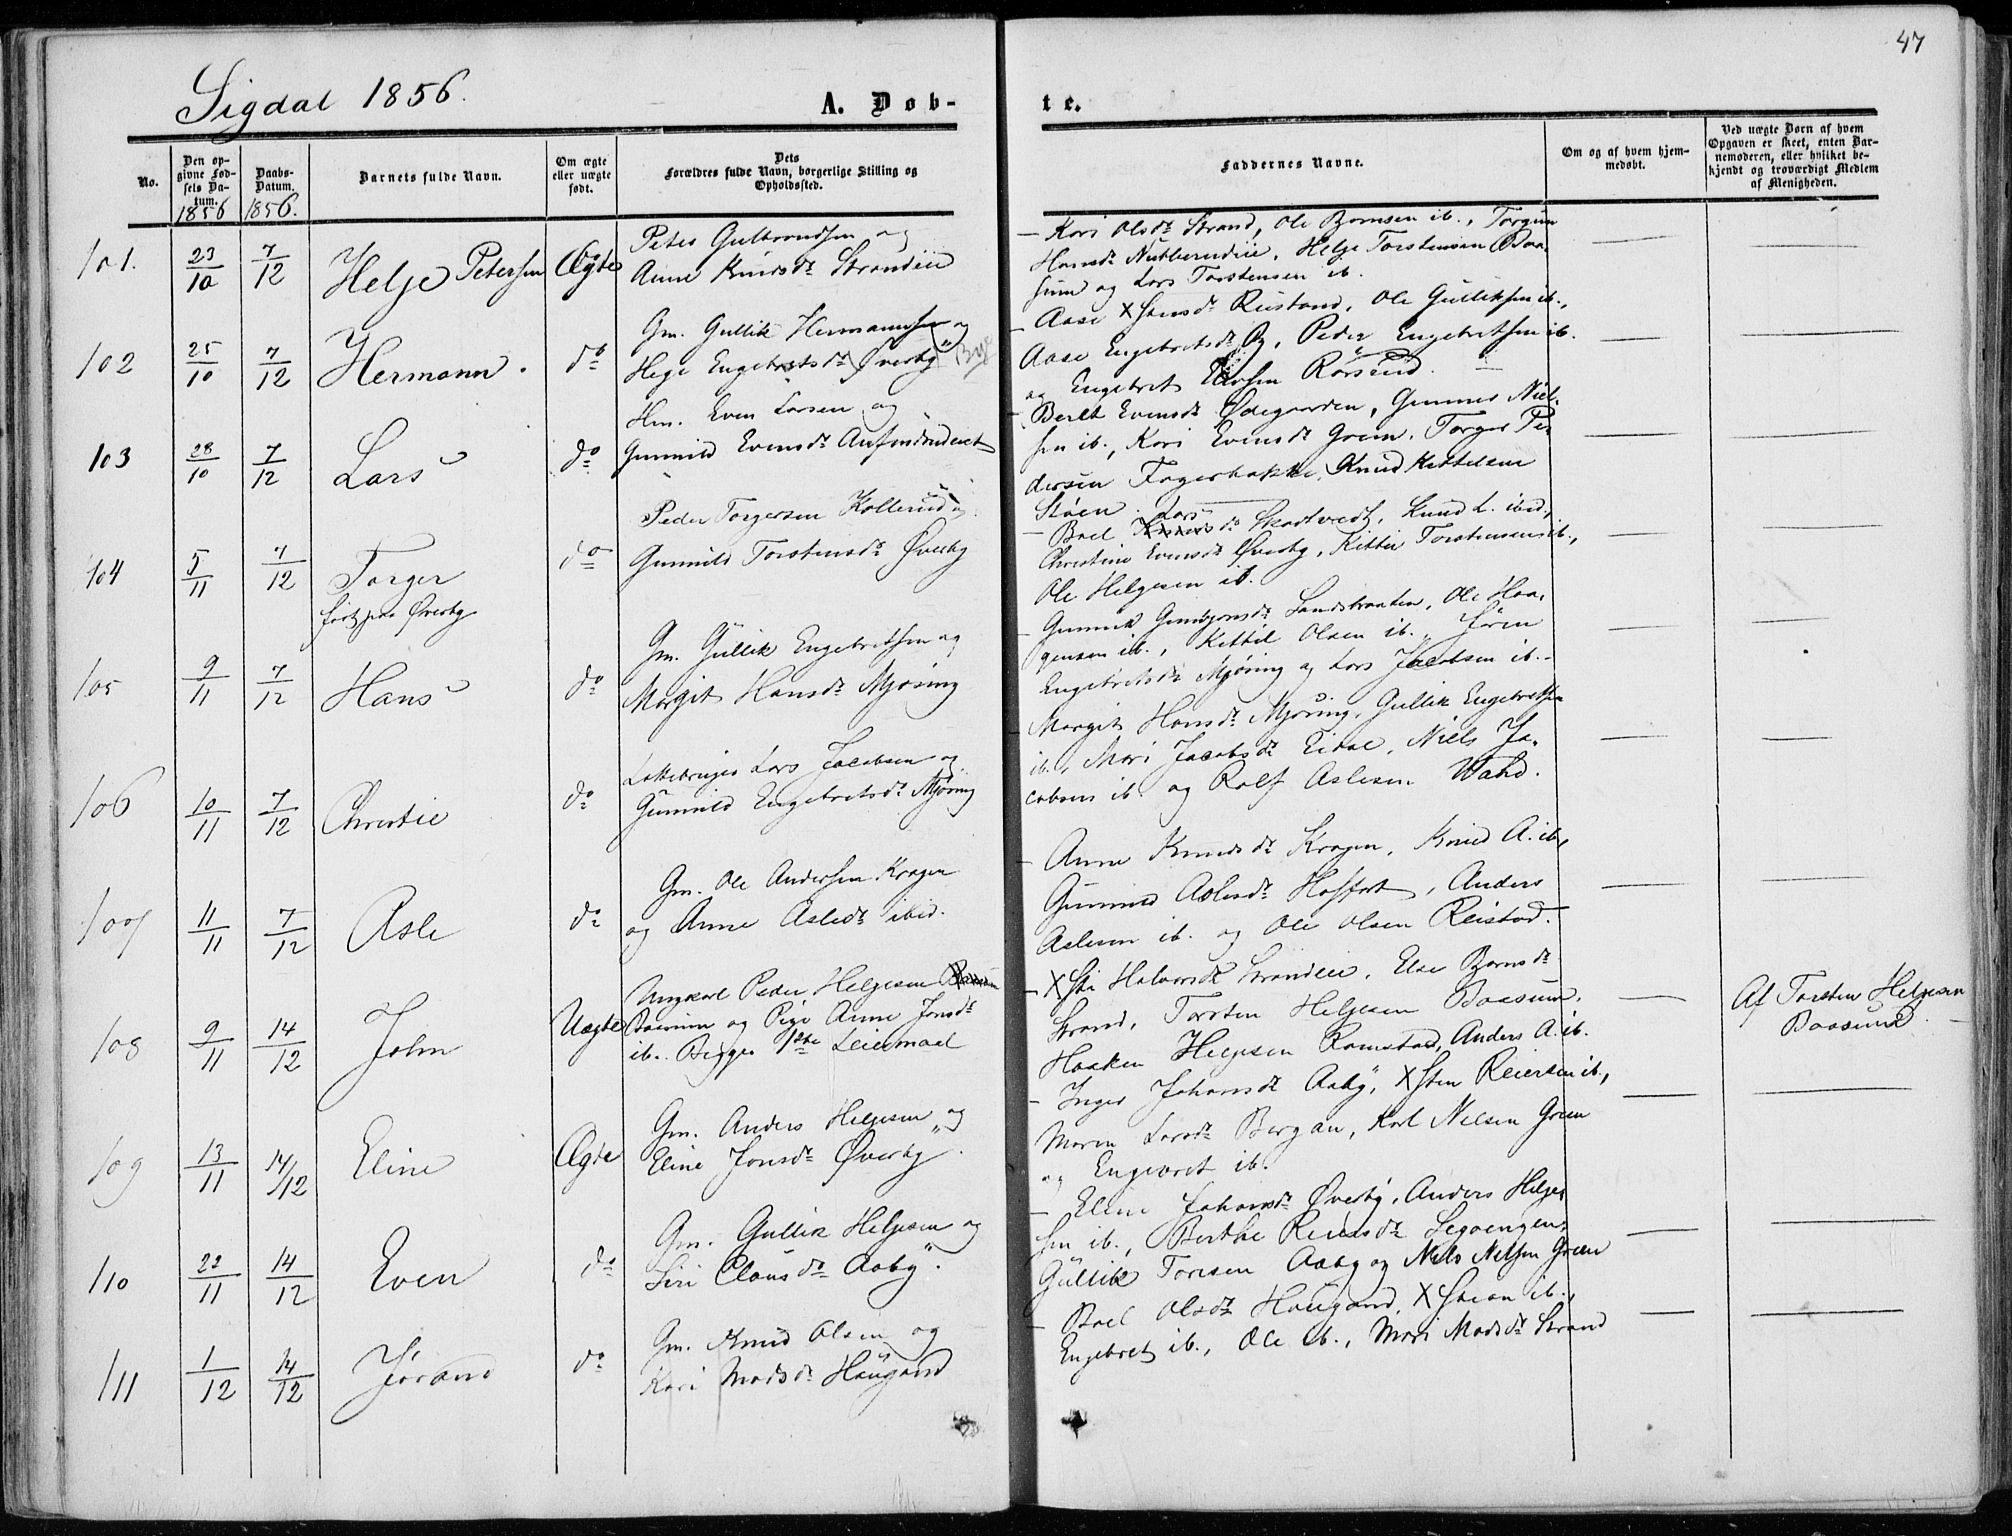 47
Sigdal 1856.
A. Døb-
te.
No.
Den op-
givne Fød-
sels Da-
tum.
1856
Daabs-
Datum.
1856.
Barnets fulde Navn.
Om ægte
eller uægte
født.
Dets
Forældres fulde Navn, borgerlige Stilling og
Opholdssted.
Faddernes Navne.
Om og af hvem hjem-
medøbt.
Ved uægte Børn af hvem
Opgaven er skeet, enten Bar-
nemoderen, eller hvilket be-
kjendt og troværdigt Medlem
af Menigheden.
101. 23/10 7/12 Helge Petersen Ægte
Peter Gulbrandsen og
Anne Knudsdr Strandeie
Kari Olsdr Strand, Ole Bornsen ib., Torgun
Hansdr Nubberudeie, Helge Torstensen Baa-
sum og Lars Torstensen ib.
102 25/10 7/12 Hermann. do
Gm. Gullik Hermannsen og
Hege Engebretsdr Øverby
Aase Xstensdr Reistand, Ole Gulliksen ib.,
Aase Engebretsdr By, Peder Engebretsen ib.
og Engebret
103 28/10 7/12 Lars do
Hm. Even Larsen og
Gunnild Evensdr
Berit Evensdr Ødegaarden, Gunner Niel-
sen ib., Kari Evensdr Grøn, Torger Pe-
dersen Fagerbakke, Knud Kittelsen
Støen.
104 5/11 7/12 Torger
født paa Øverby
do
Peder Torgersen Kollerud og
Gunnild Torstensdr Øverby
Boel Larsdr Skartvedt, Knud L. ibid.,
Christine Evensdr Øverby, Kittil Torstensen ib.,
Ole Helgesen ib.
105 9/11 7/12 Hans do
Gm. Gullik Engebretsen og
Margit Hansdr Mjøring
Gunnil Gunbjørnsdr Sandsbraaten, Ole Haa-
gensen ib., Kittil Olsen ib., Jøren
Engebretsdr Mjøring og Lars Jacobsen ib.
106 10/11 7/12 Christie do
Lars Jacobsen og
Gunnild Engebretsdr Mjøring
Margit Hansdr Mjøring, Gullik Engebretsen
ib., Mari Jacobsdr Eidal, Niels Ja-
cobsen ib. og Rolf Aslesen Wand.
107 11/11 7/12 Asle do
Gm. Ole Andersen Kragen
og Anne Aslesdr ibid.
Anne Knudsdr Kragen, Knud A. ib.,
Gunnild Aslesdr Hoffart, Anders
Aslesen ib. og Ole Olsen Reistad.
108 9/11 14/12 John Uægte
Ungkarl Peder Helgesen
Baasum og Pige Anne Jonsdr
ib. Begges 1ste Leiermaal
Xsti Halvorsdr Strandeie, Else Børnsdr
Strand, Torsten Helgesen Baasum,
Haaken Helgesen Ramstad, Anders A. ib.
Af Torsten Helgesen
Baasum
109 13/11 14/12 Eline Ægte
Gm. Anders Helgesen og
Eline Jonsdr Øverby
Inger Johansdr Aaby, Xsten Reiersen ib.,
Maren Larsdr Bergan, Karl Nielsen Green
og Engebret ib.
110 22/11 14/12 Even do
Gm. Gullik Helgesen og
Siri Clausdr Aaby.
Eline Johansdr Øverby, Anders Helge-
sen ib., Berthe Reiersdr
Gullik Toresen Aaby og Niels Nielsen Green
111 1/12 14/12 Jørand do
Gm. Knud Olsen og
Kari Madsdr Haugand
Boel Olsdr Haugand, Xstian ib.,
Engebret ib., Ole ib., Mari Madsdr Strand